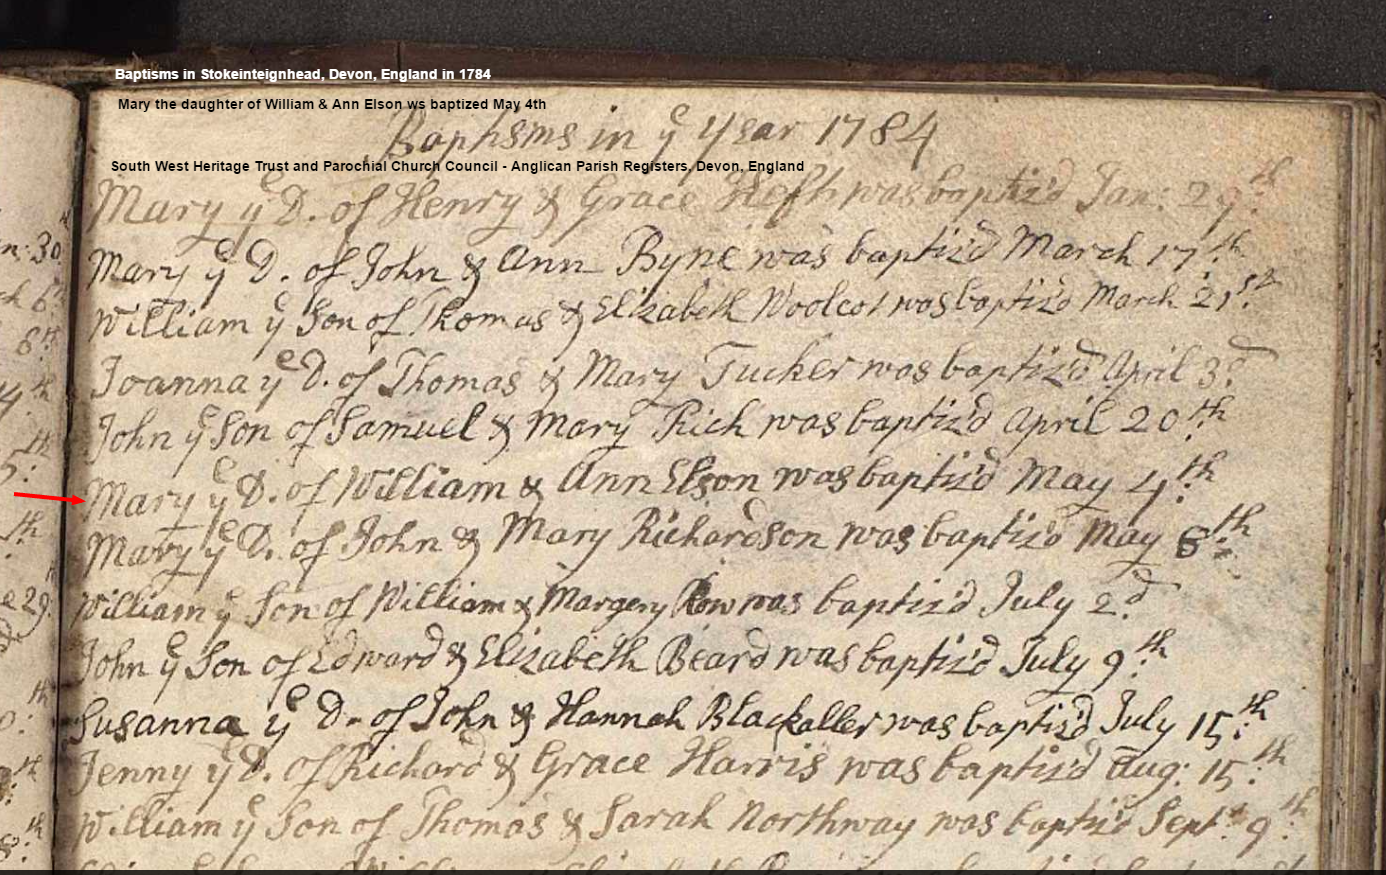 Baptisms in Stokeinteignhead, Devon, England in 1784
Mary the daughter of William & Ann Elson ws baptized May 4th
Baptisms in yͤ Year 1784
South West Heritage Trust and Parochial Church Council - Anglican Parish Registers, Devon, England
Mary yͤ D. of Henry & Grace was baptiz'd Jan: 29th
Mary yͤ D. of John & Ann Byne was baptiz'd March 17th
William yͤ Son of Thomas & Elizabeth Woolcot was baptiz'd March 21st
Joanna yͤ D. of Thomas & Mary Tucker was baptiz'd April 3d
John yͤ Son of Samuel & Mary Rich was baptiz'd April 20th
Mary yͤ D. of William & Ann Elson was baptiz'd May 4th
Mary yͤ D. of John & Mary Richardson was baptiz'd May 8th
William yͤ Son of William & Margery Row was baptiz'd July 2d
John yͤ Son of Edward & Elizabeth Beard was baptiz'd July 9th
Susanna yͤ D. of John & Hannah Blackaller was baptiz'd July 15th
Jenny yͤ D. of Richard & Grace Harris was baptiz'd Aug: 15th
William yͤ Son of Thomas & Sarah Northway was baptiz'd Sept: 9th